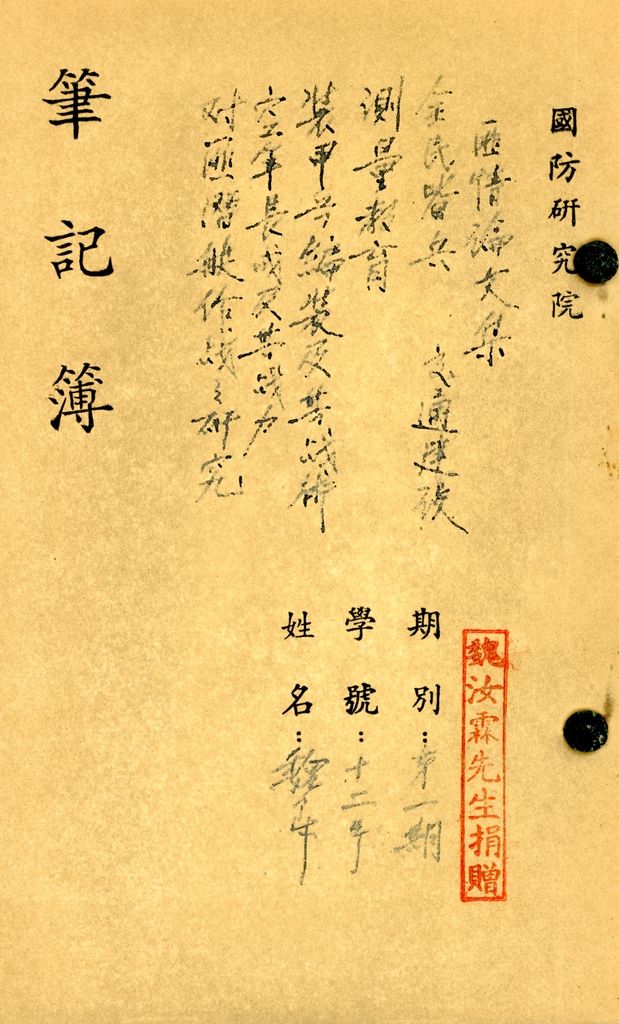 國防研究院
匪情論文集
全民皆兵 交通建設
測量教育
裝甲兵編裝及其战術
空軍長成及其战力
对匪潛艇作战之研究
魏汝霖先生捐贈
期別：第一期
學號：十二
姓名：
筆記簿